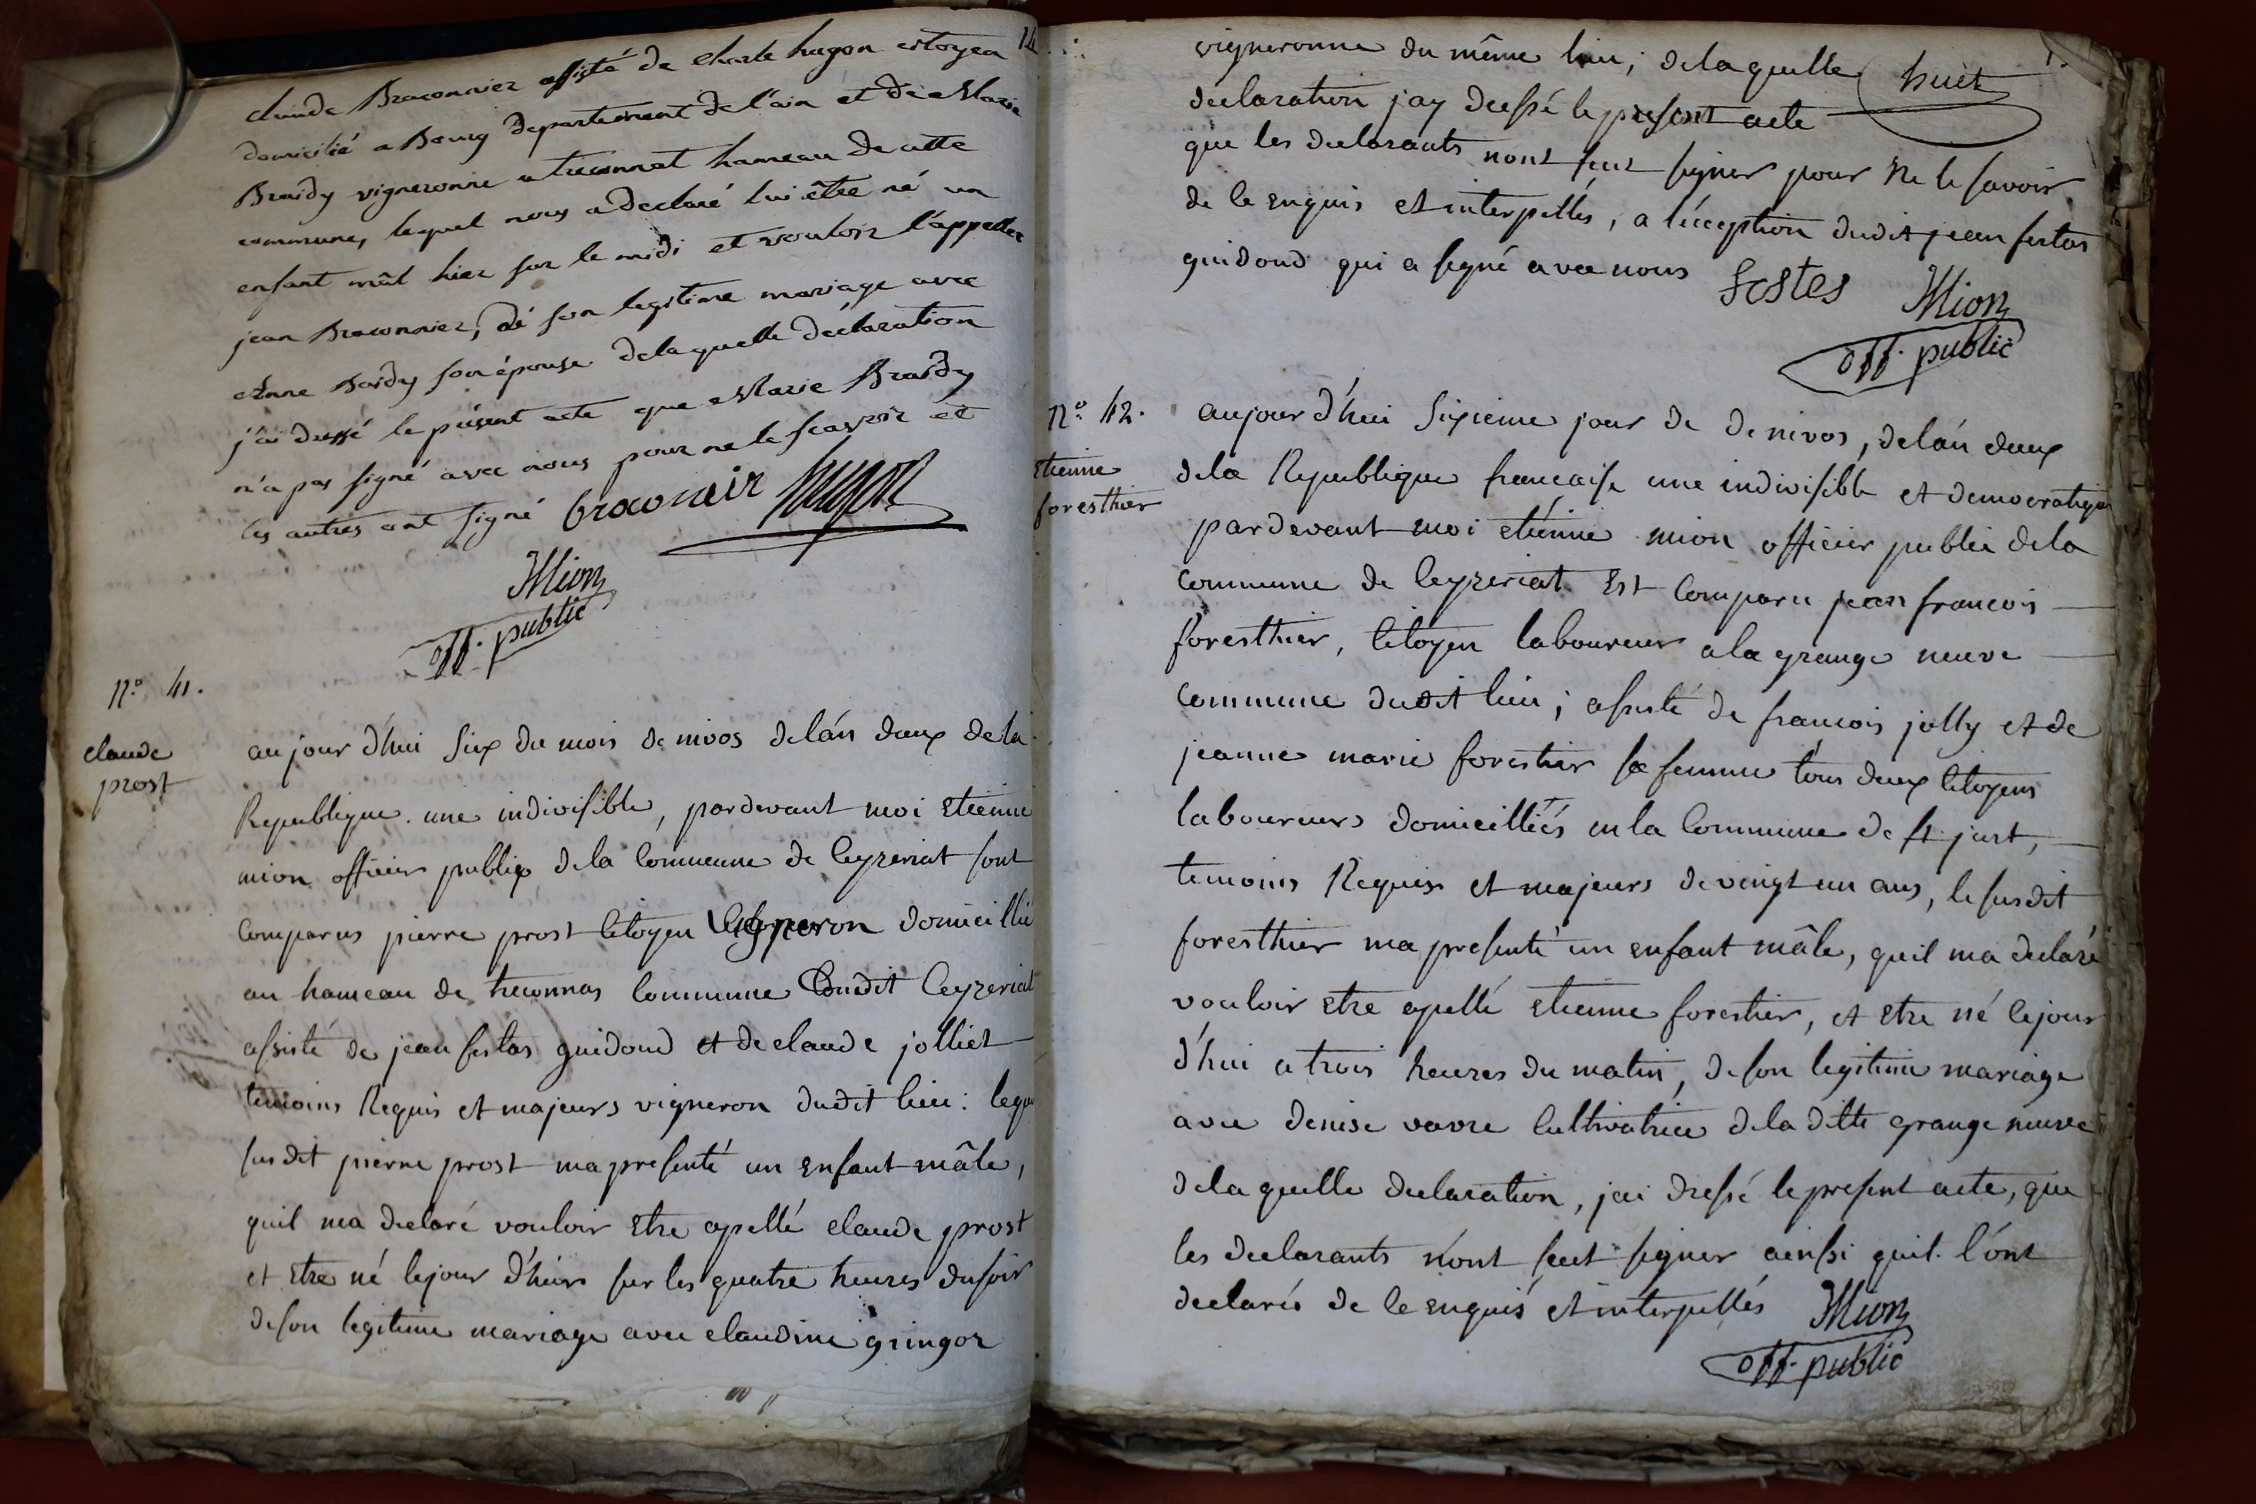 14
claude Braconnier assisté de charle hugon citoyen
domicilié a Bourg departement de l'ain et de Marie
Brardy vigneronne a treconnat hameau de cette
commune, lequel nous a declaré lui être né un
enfant mâl hier sur le midi et vouloir l'appeller
jean Braconnier, dé son legitime mariage avec
Anne Bardy son épouse delaquelle déclaration
j'ai dressé le présent acte que Marie Brardy
n'a pas signé avec nous pour ne le scavoir et
les autres ont signé braconeir hugon
Mion
off. public
N.º 41.
claude
prost
aujour d'hui six du mois de nivos delán deux dela
Republique une indivisible, pardevant moi Etienne
mion officier publiq dela commune de Ceyzeriat sont
comparus pierre prost citoyen vigneron domicillié
au hameau de treconnas commune dudit Ceyzeriat
assisté de jean festas guidoud et de claude jolliet
temoins Requis et majeurs vigneron dudit lieu: lequ
susdit pierre prost ma presenté un enfant mâle,
quil ma declaré vouloir Etre apellé claude prost
et Etre né lejour d'hiers sur les quatre heures dusoir
deson legitime mariage avec claudine gringoz
vigneronne du même lieu; delaquelle
huit
declaration jay dressé le present acte
que les declarants nont seut signer pour ne le savoir
de le enquis et interpellés, a léxception dudit jean festas
guidoud qui a signé avec nous festes Mion
off. public
N.º 42.
Etienne
foresthier
aujourd'hui sixieme jour de de nivos, delán deux
dela Republique francaise une indivisible et democratique
pardevant moi etiénne mion officier public dela
commune de Ceyzeriat Est comparu jean francois
foresthier, citoyen laboureur ala grange neuve
commune dudit lieu; assisté de francois jolly et de
jeanne marie forestier sa femme tous deux citoyens
laboureurs domicilliés en la commune de st just,
temoins Requis et majeurs de vingt un ans, le susdit
foresthier ma presenté un enfant mâle, quil ma declaré
vouloir etre apellé etienne forestier, et Etre né cejour
d'hui a trois heures du matin, de son legitime mariage
avec denise vavre cultivatrice dela ditte grange neuve
delaquelle declaration, jai dressé le present acte, que
les declarants n'ont seut signer ainssi quil l'ónt
declarés de le enquis et interpellés Mion
off. public